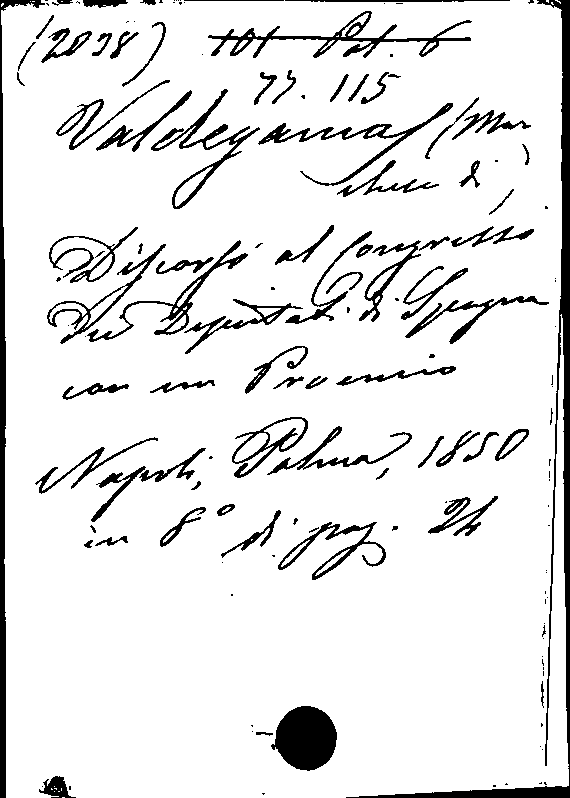 (2838) 101 Pal. 6
77. 115
Valdegamas (Mar
chese di)
Discorso al Congresso
dei Deputati di Spagna
con un Proemio
Napoli, Palma, 1850
in 8° di pag. 24